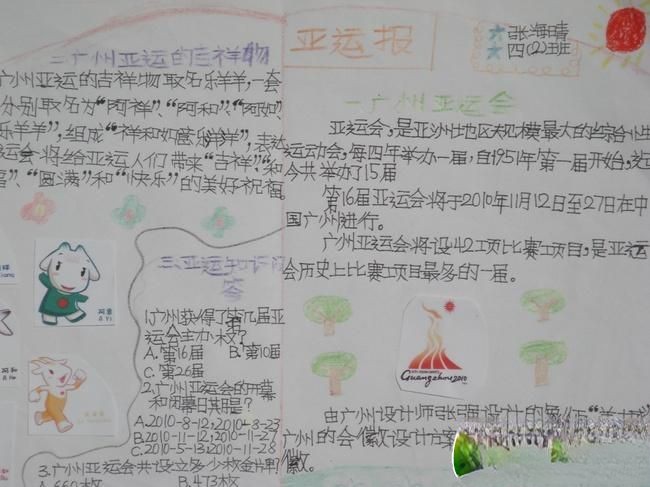 亚运报
张海晴
四(2)班
一广州亚运会
亚运会,是亚洲地区规模最大的综合性
运动会,每四年举办一届,自1951年第一届开始,迄
今共举办了15届
第16届亚运会将于2010年11月12日至27日在中
国广州进行。
广州亚运会将设42项比赛项目,是亚运
会历史上比赛项目最多的一届。
Guangzhou 2010
由广州设计师张强设计的
广州的会徽设计方案
徽。
二广州亚运的吉祥物
广州亚运的吉祥物取名乐羊羊,一套
分别取名为“阿祥”、“阿和”、“阿如”、
乐羊羊”,组成“祥和如意乐洋洋”,表达
运会将给亚运人们带来“吉祥”、“和
”、“圆满”和“快乐”的美好祝福。
三、亚运知识问
答
1.广州获得了第几届亚
运会主办权?
A.第16届 B.第10届
C.第26届
2.广州亚运会的开幕
和闭幕日期是?
A.2010-8-12,2010-8-23
B.2010-11-12,2010-11-27
C.2010-5-13,2010-11-28
3.广州亚运会共设立多少枚金牌?
A.660枚 B.473枚